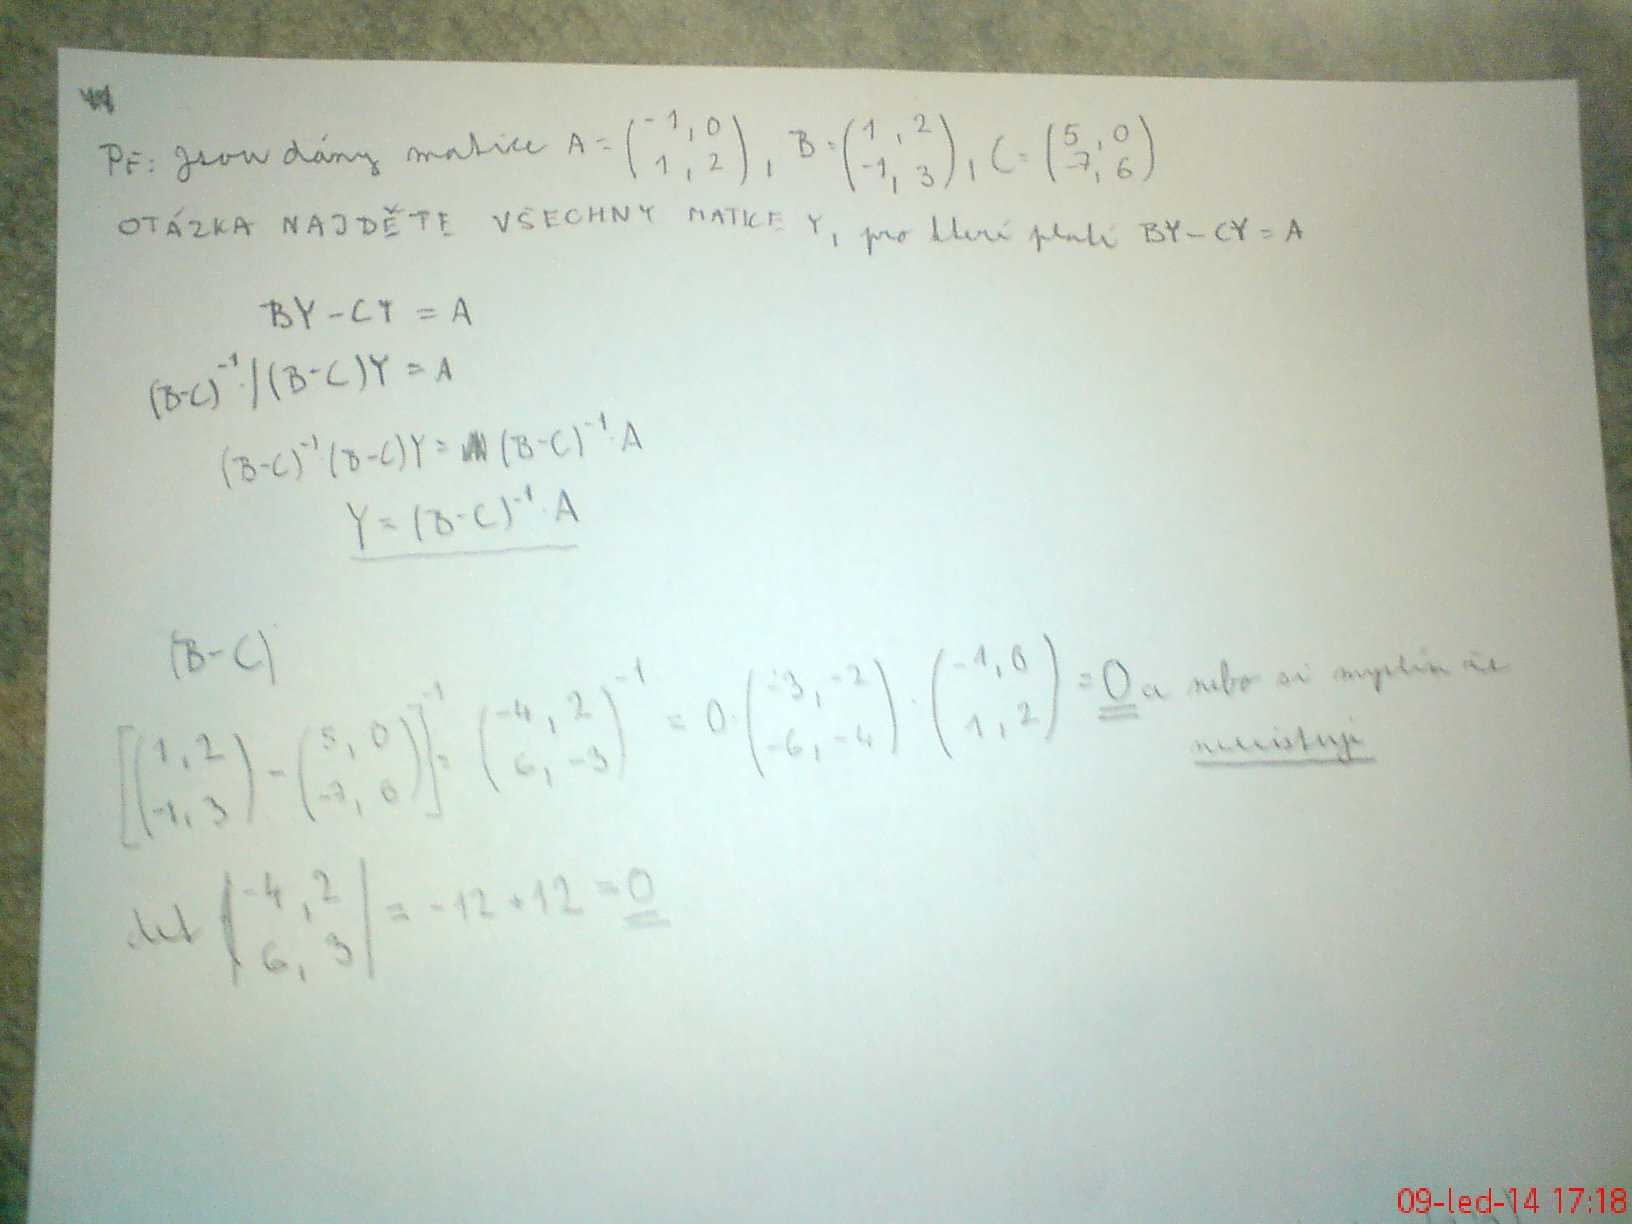 Př: Jsou dány matice A = (-1, 0 / 1, 2), B = (1, 2 / -1, 3), C = (5, 0 / -7, 6)
OTÁZKA NAJDĚTE VŠECHNY MATICE Y, pro které platí BY - CY = A
BY - CY = A
(B-C)⁻¹· / (B-C)Y = A
(B-C)⁻¹·(B-C)Y = (B-C)⁻¹·A
Y = (B-C)⁻¹·A
(B-C)
[(1, 2 / -1, 3) - (5, 0 / -7, 6)]⁻¹ = (-4, 2 / 6, -3)⁻¹ = 0·(-3, -2 / -6, -4)·(-1, 0 / 1, 2) = 0 a nebo si myslím že
neexistuje
det |-4, 2 / 6, 3| = -12 + 12 = 0
09-led-14 17:18